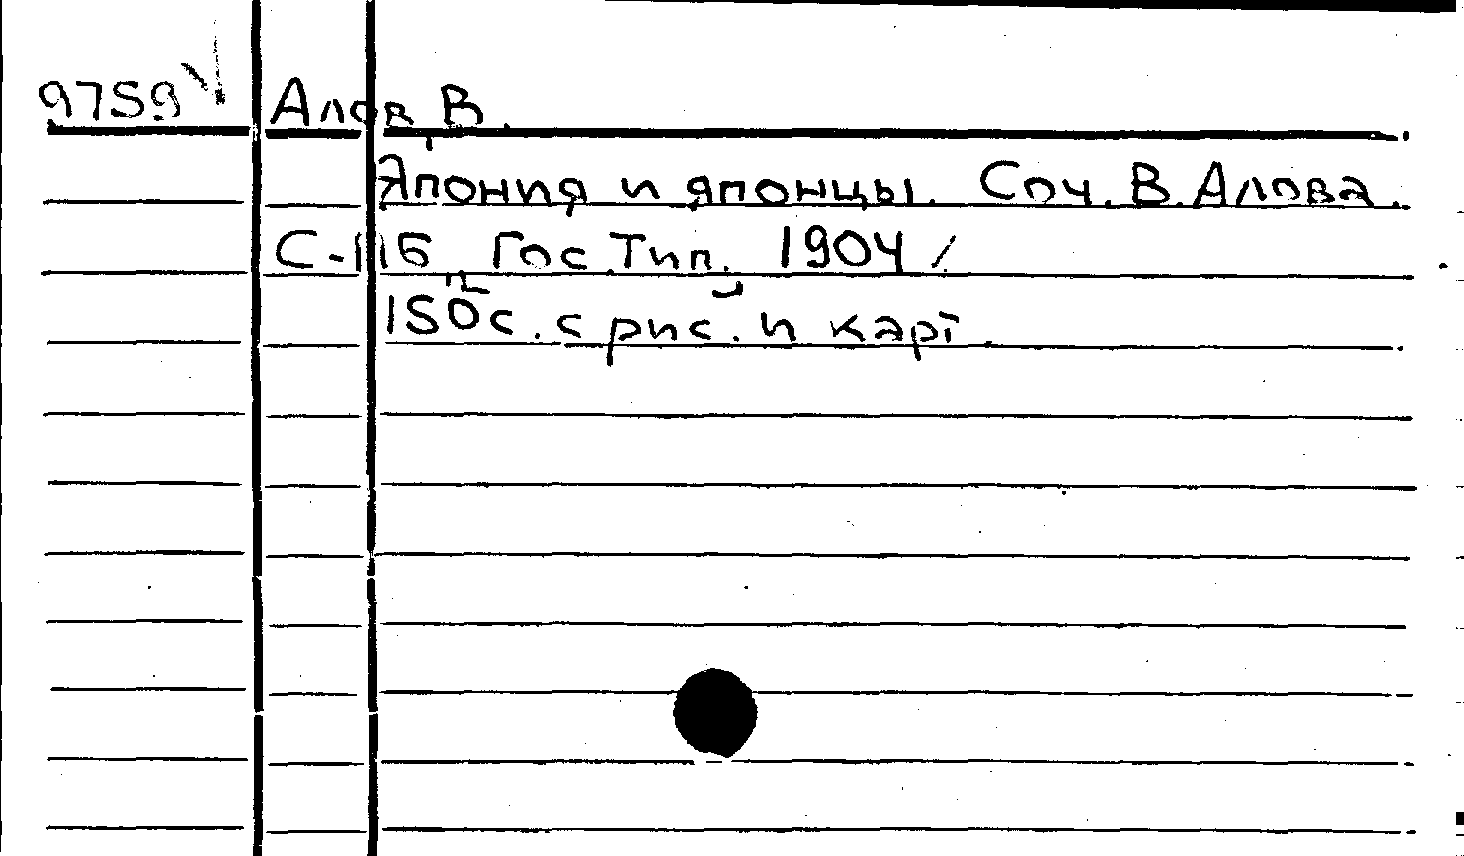 9759 Алов, В.
Япония и японцы. Соч. В. Алова.
С-Пб, Гос. Тип. 1904
150 с. с рис. и карт.